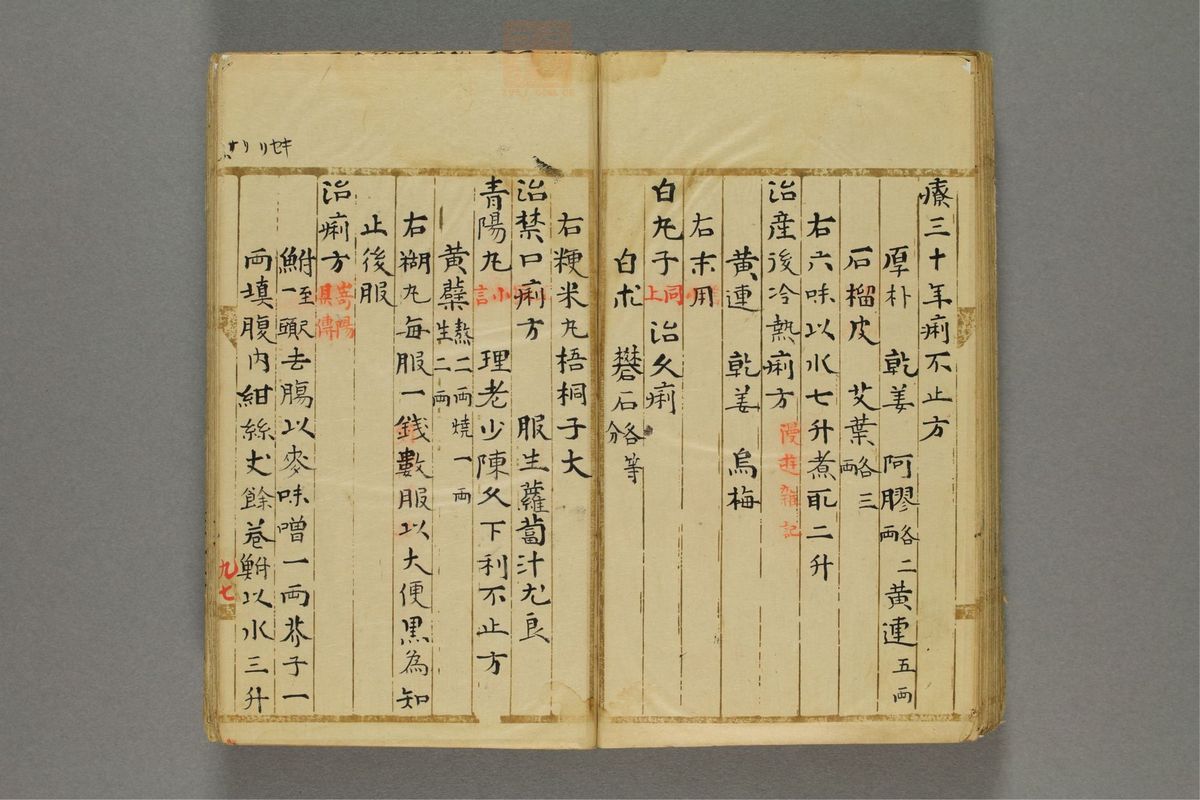 療三十年痢不止方
厚朴 乾姜 阿膠各二両 黄連五両
石榴皮 艾葉各三両
右六味以水七升煮取二升
治産後冷熱痢方 漫遊雑記
黄連 乾姜 烏梅
右末用
白丸子 同上 治久痢
白朮 礬石各等分
右粳米丸梧桐子大
治禁口痢方 服生蘿蔔汁尤良
青陽丸 小言 理老少陳久下利不止方
黄蘗熬二両焼一両生二両
右糊丸毎服一錢數服以大便黒為知
止後服
治痢方 嵩陽具傳
鮒一頭至尺去腸以麥味噌一両芥子一
両填腹内紺絲丈餘巻鮒以水三升
九七